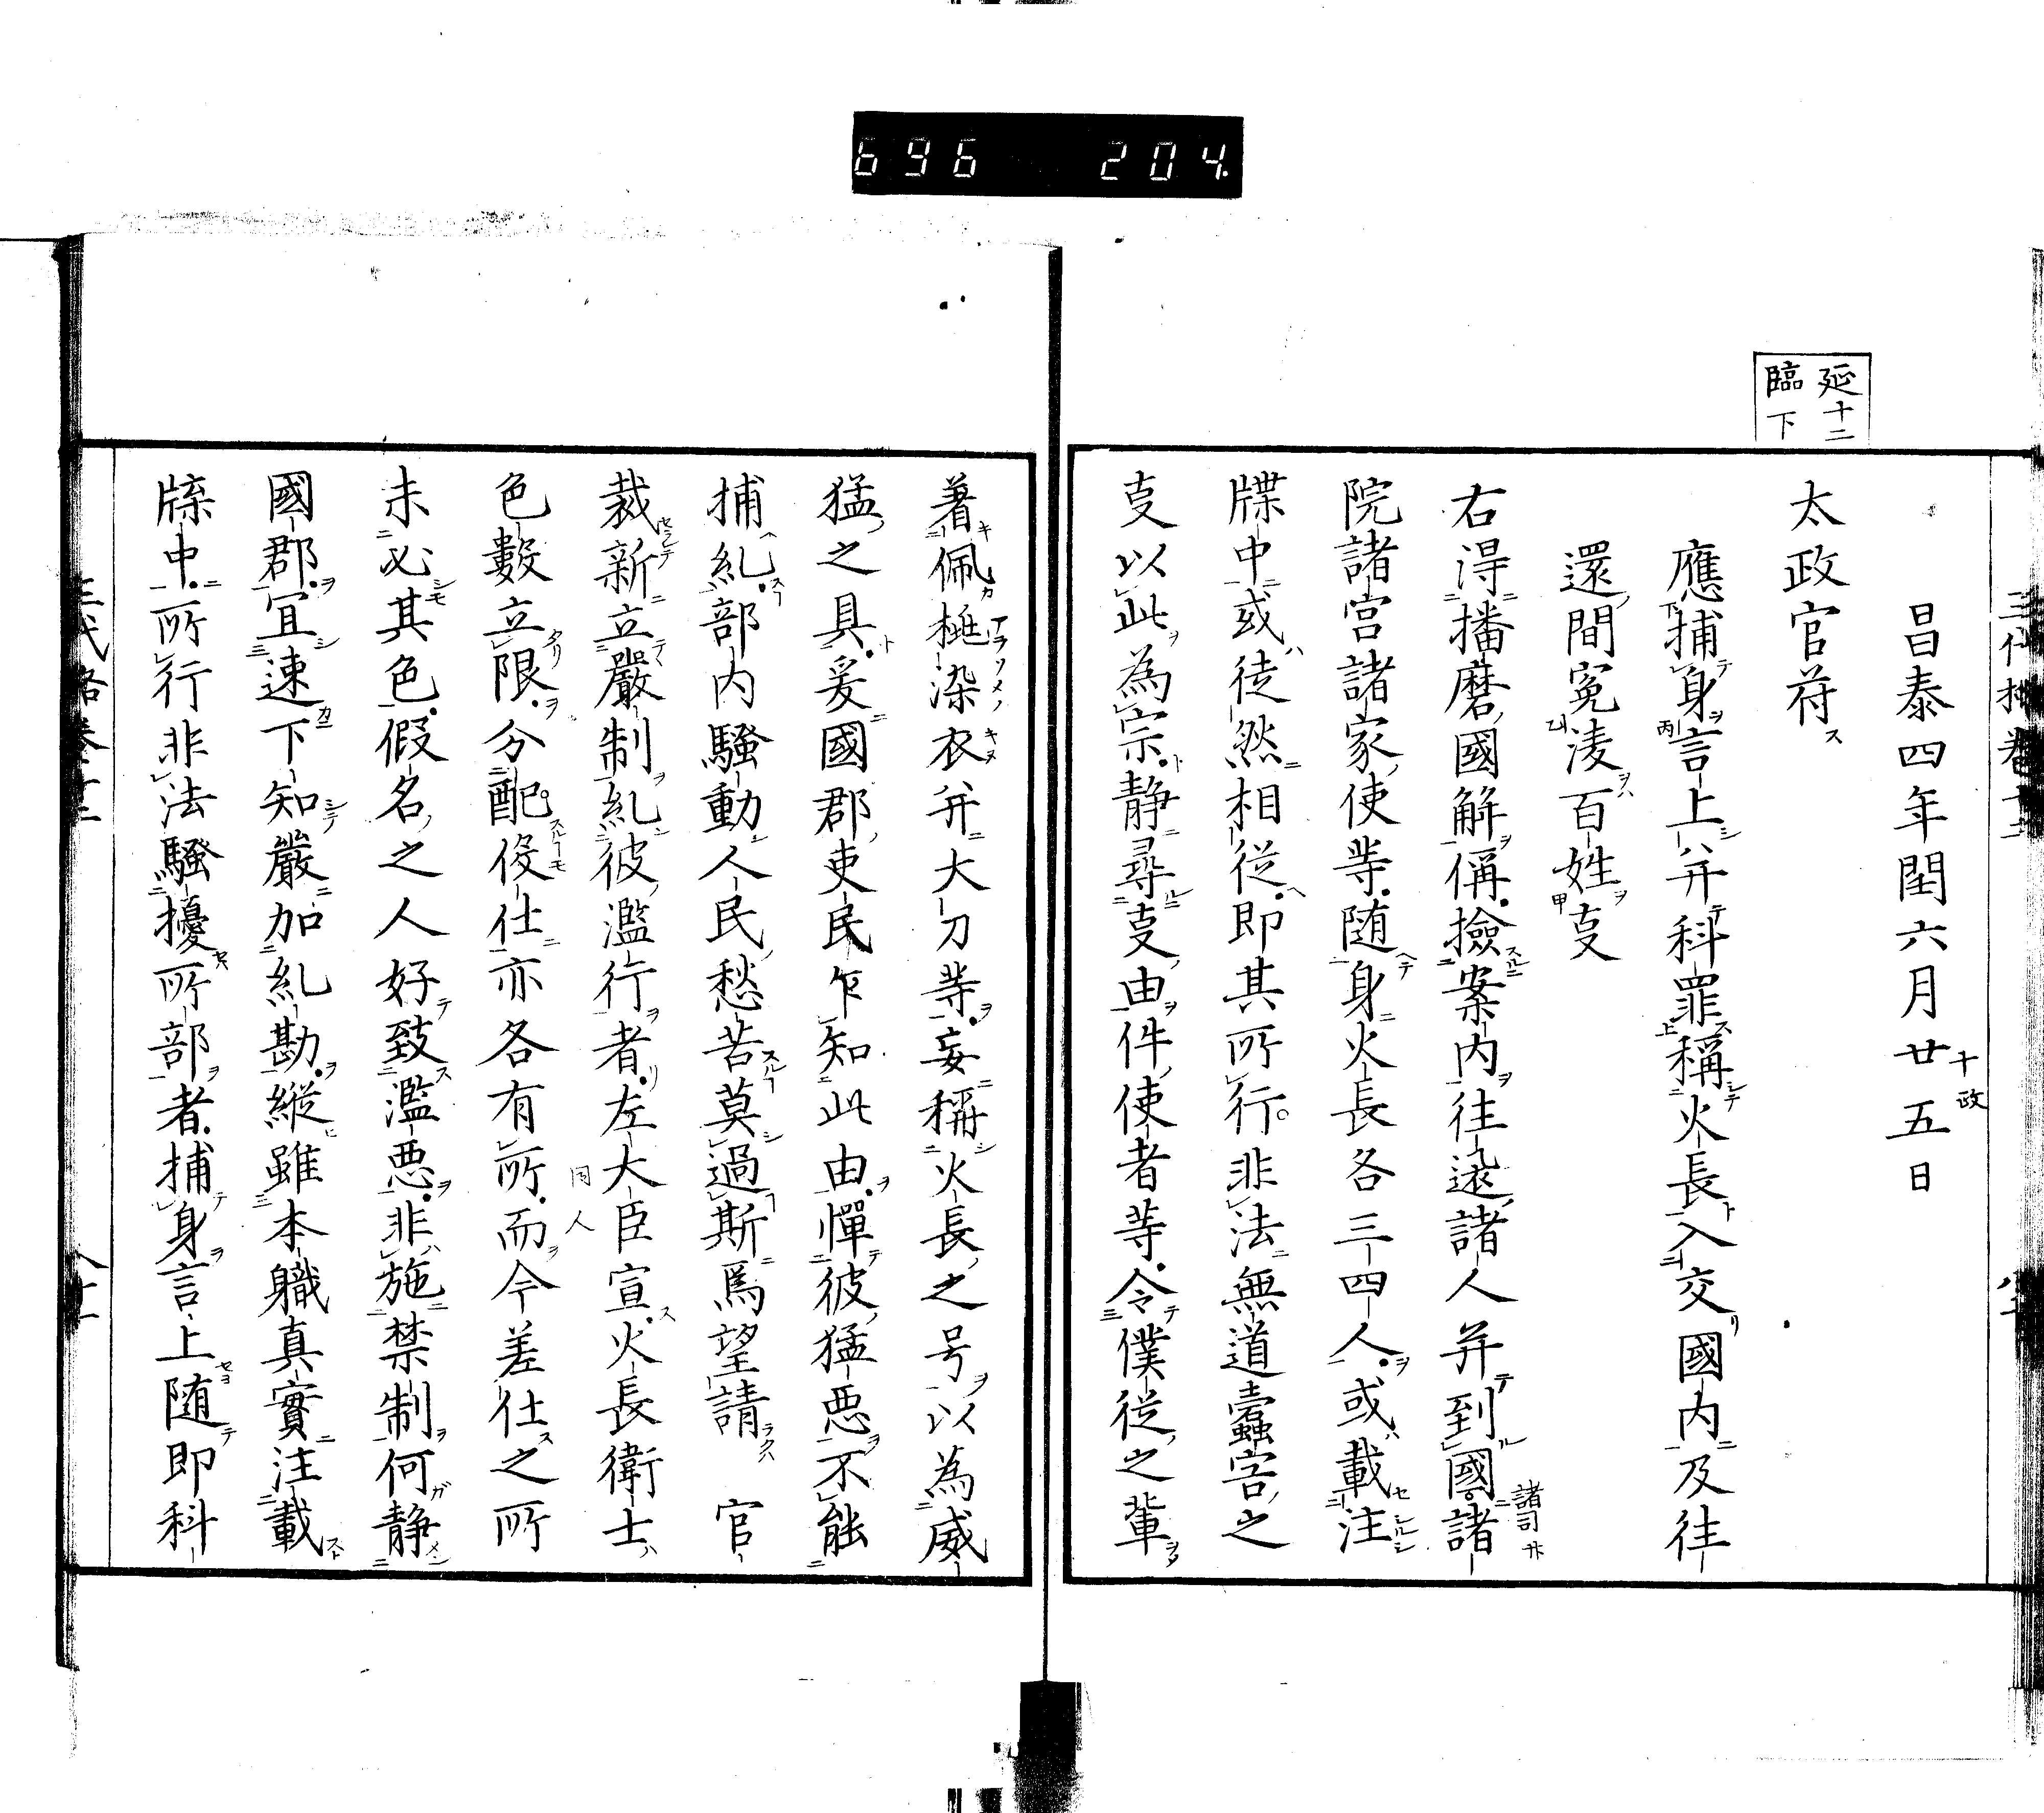 696 204.
延十二
臨下
昌泰四年閏六月廿五日
十政
太政官苻ス
應捕身言上并科罪稱火長入交國内及往
還間冤凌百姓㕝
右得播磨國解偁撿案内往還諸人并到國諸
諸司
院諸宮諸家使等随身火長各三四人或載注
牒中或徒然相従即其所行非法無道蠹害之
㕝以此為宗静尋㕝由件使者等令僕従之輩
著佩桙染衣并大刀等妄稱火長之号以為威
猛之具爰國郡吏民乍知此由憚彼猛悪不能
捕糺部内騒動人民愁苦莫過斯焉望請 官
裁新立嚴制糺彼濫行者左大臣宣火長衛士
同人
色數立限分配役仕亦各有所而今差仕之所
未必其色假名之人好致濫悪非施禁制何静
國郡宜速下知嚴加糺勘縦雖本職真實注載
牒中所行非法騒擾所部者捕身言上随即科